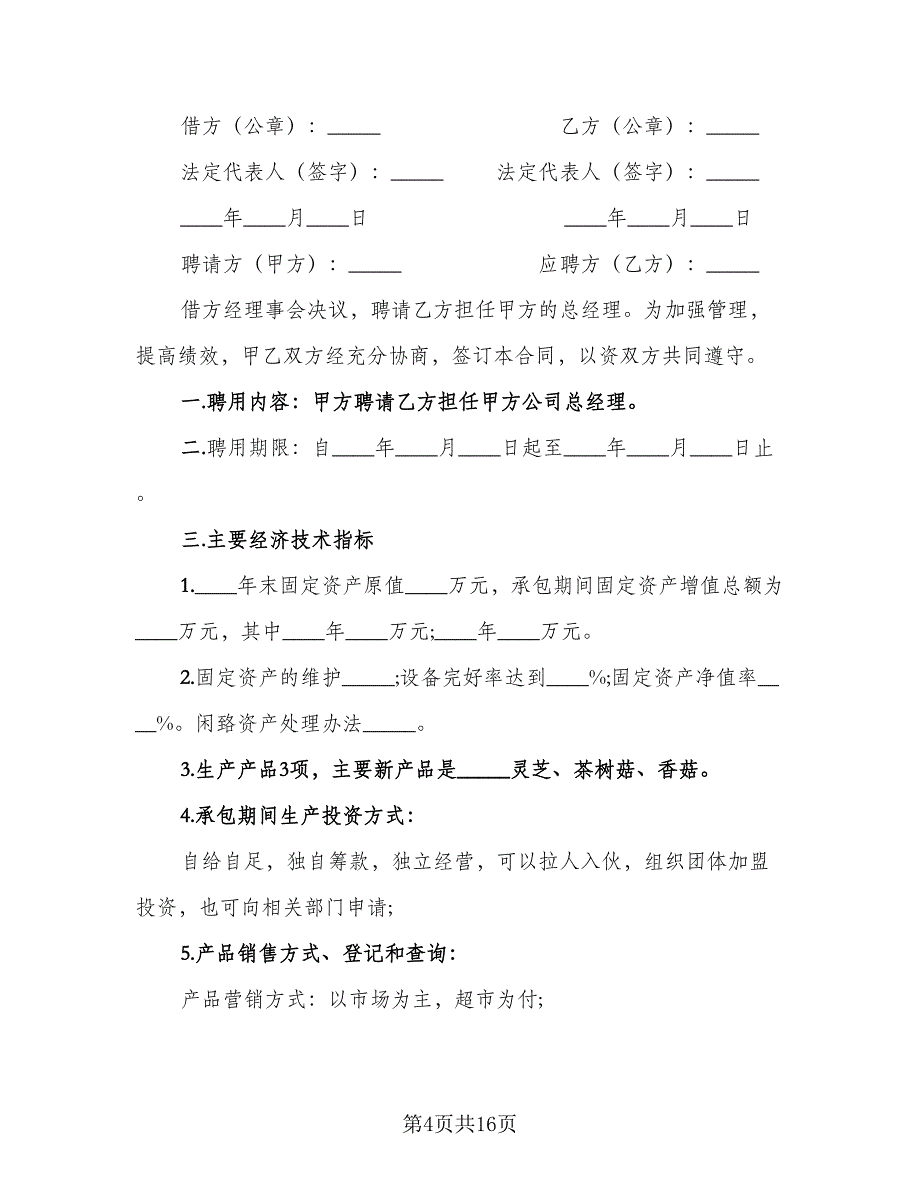 借方（公章）：_____ 乙方（公章）：_____
法定代表人（签字）：_____ 法定代表人（签字）：_____
____年____月____日 ____年____月____日
聘请方（甲方）：_____ 应聘方（乙方）：_____
借方经理事会决议，聘请乙方担任甲方的总经理。为加强管理，
提高绩效，甲乙双方经充分协商，签订本合同，以资双方共同遵守。
一.聘用内容：甲方聘请乙方担任甲方公司总经理。
二.聘用期限：自____年____月____日起至____年____月____日止
。
三.主要经济技术指标
1.____年末固定资产原值____万元，承包期间固定资产增值总额为
____万元，其中____年____万元;____年____万元。
2.固定资产的维护_____;设备完好率达到____%;固定资产净值率__
__%。闲臵资产处理办法_____。
3.生产产品3项，主要新产品是_____灵芝、茶树菇、香菇。
4.承包期间生产投资方式：
自给自足，独自筹款，独立经营，可以拉人入伙，组织团体加盟
投资，也可向相关部门申请;
5.产品销售方式、登记和查询：
产品营销方式：以市场为主，超市为付;
第4页共16页